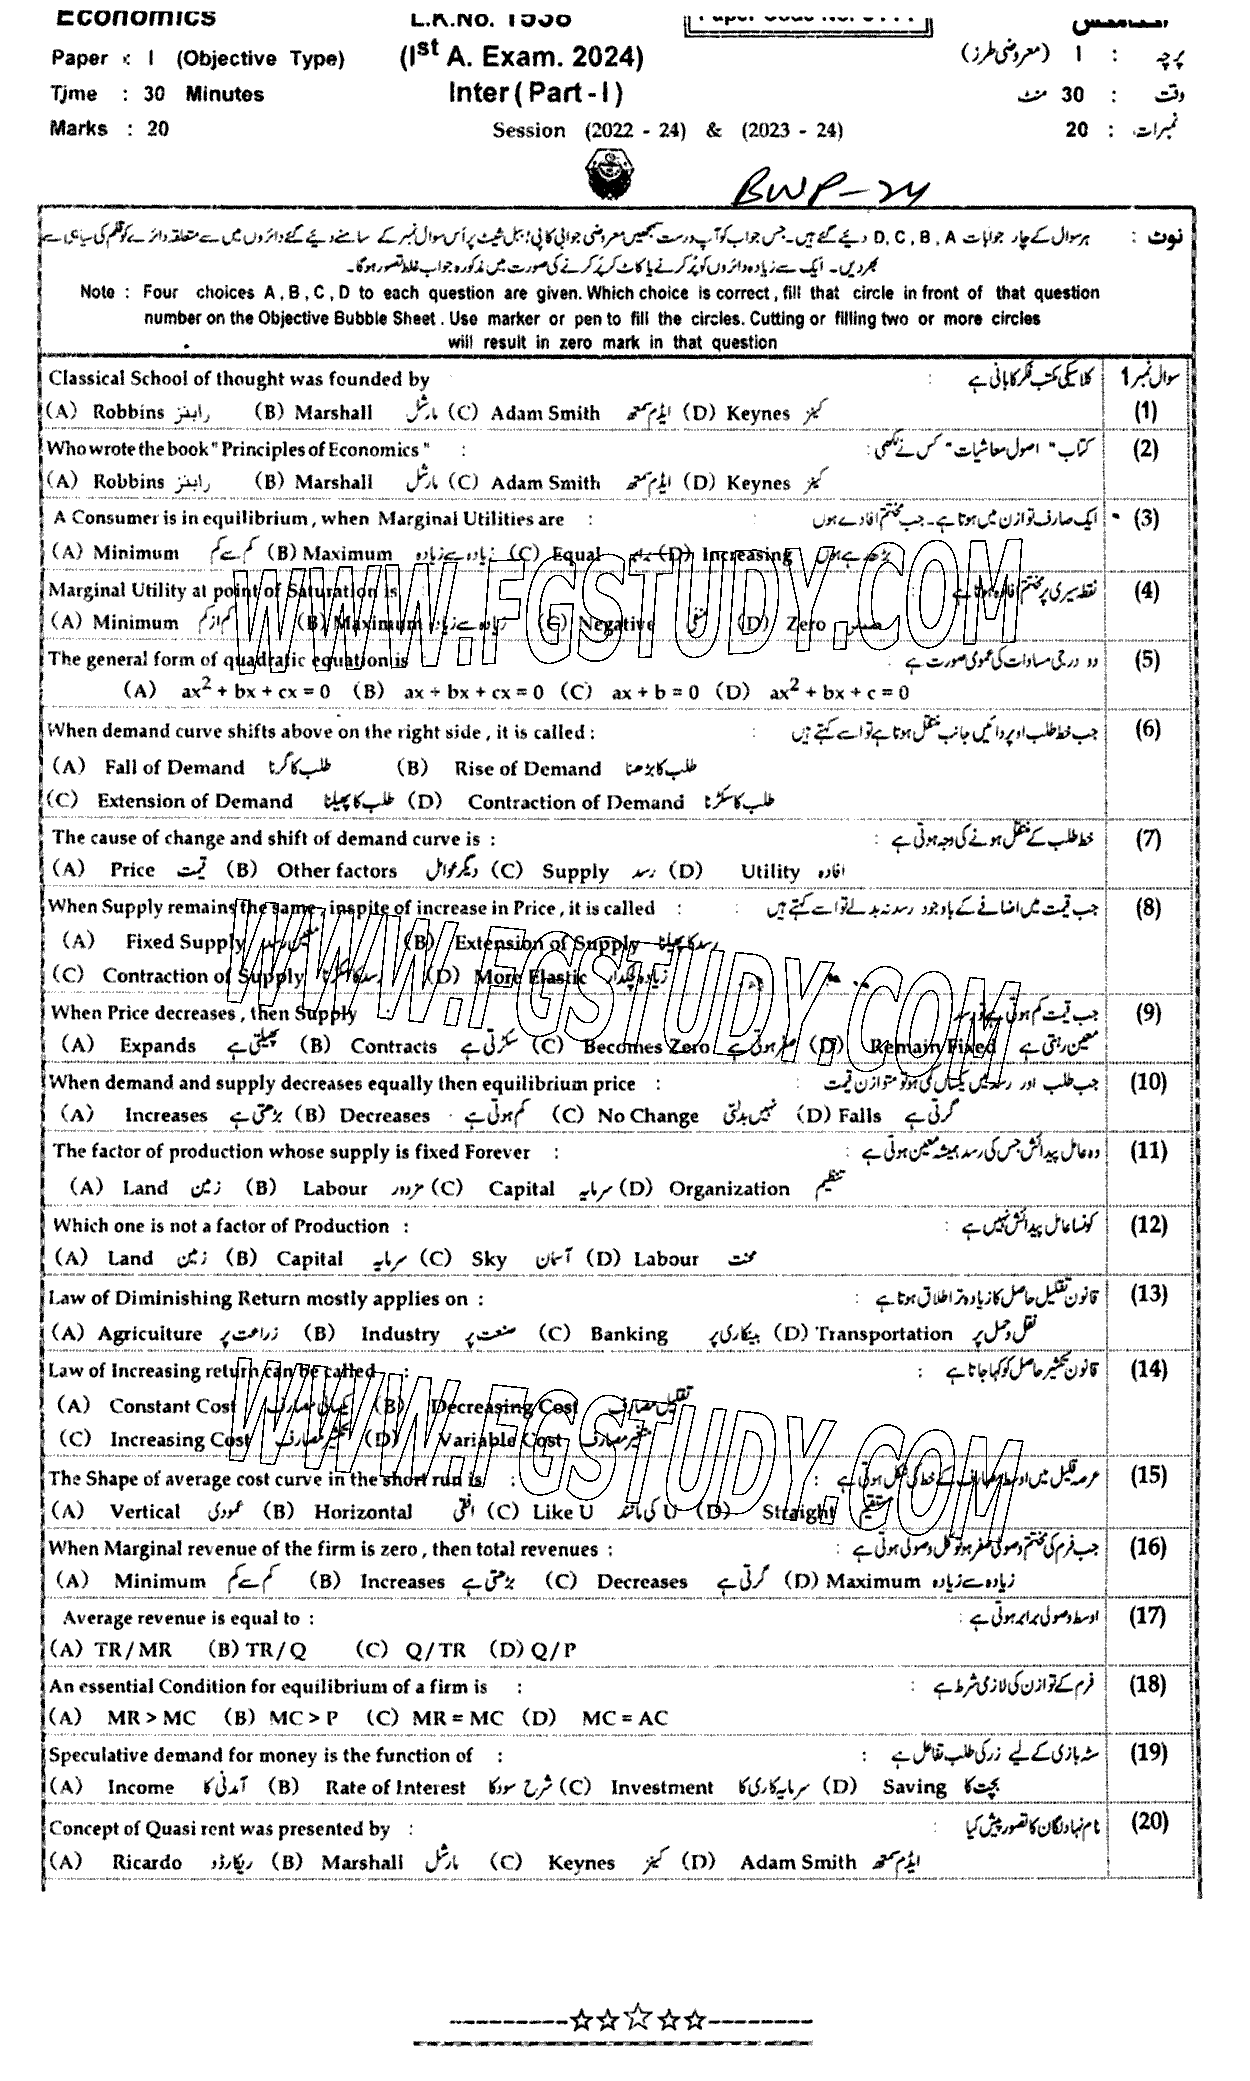 Economics L.K.No. 1538
Paper : I (Objective Type) (Ist A. Exam. 2024) پرچہ : I (معروضی طرز)
Time : 30 Minutes Inter ( Part - I ) وقت : 30 منٹ
Marks : 20 Session (2022 - 24) & (2023 - 24) نمبرات : 20
BWP-24
نوٹ : ہر سوال کے چار جوابات D , C , B , A دیئے گئے ہیں۔ جس جواب کو آپ درست سمجھیں معروضی جوابی کاپی / ببل شیٹ پر اُس سوال نمبر کے سامنے دیئے گئے دائروں میں سے متعلقہ دائرے کو قلم کی سیاہی سے
بھر دیں۔ ایک سے زیادہ دائروں کو پُر کرنے یا کاٹ کر پُر کرنے کی صورت میں مذکورہ جواب غلط تصور ہوگا۔
Note : Four choices A , B , C , D to each question are given. Which choice is correct , fill that circle in front of that question
number on the Objective Bubble Sheet . Use marker or pen to fill the circles. Cutting or filling two or more circles
will result in zero mark in that question
Classical School of thought was founded by : کلاسیکی مکتب فکر کا بانی ہے سوال نمبر 1
(A) Robbins رابنز (B) Marshall مارشل (C) Adam Smith ایڈم سمتھ (D) Keynes کینز (1)
Who wrote the book " Principles of Economics " : کتاب " اصول معاشیات " کس نے لکھی : (2)
(A) Robbins رابنز (B) Marshall مارشل (C) Adam Smith ایڈم سمتھ (D) Keynes کینز
A Consumer is in equilibrium , when Marginal Utilities are : ایک صارف توازن میں ہوتا ہے۔ جب مختتم افادے ہوں (3)
(A) Minimum کم سے کم (B) Maximum زیادہ سے زیادہ (C) Equal برابر (D) Increasing بڑھ رہے ہوں
Marginal Utility at point of Saturation is نقطہ سیری پر مختتم افادہ ہوتا ہے (4)
(A) Minimum کم از کم (B) Maximum زیادہ سے زیادہ (C) Negative منفی (D) Zero صفر
The general form of quadratic equation is دو درجی مساوات کی عمومی صورت ہے : (5)
(A) ax² + bx + cx = 0 (B) ax + bx + cx = 0 (C) ax + b = 0 (D) ax² + bx + c = 0
When demand curve shifts above on the right side , it is called : جب خط طلب اوپر دائیں جانب منتقل ہوتا ہے تو اسے کہتے ہیں : (6)
(A) Fall of Demand طلب کا گرنا (B) Rise of Demand طلب کا بڑھنا
(C) Extension of Demand طلب کا پھیلنا (D) Contraction of Demand طلب کا سکڑنا
The cause of change and shift of demand curve is : خط طلب کے منتقل ہونے کی وجہ ہوتی ہے : (7)
(A) Price قیمت (B) Other factors دیگر عوامل (C) Supply رسد (D) Utility افادہ
When Supply remains the same , inspite of increase in Price , it is called : جب قیمت میں اضافے کے باوجود رسد نہ بدلے تو اسے کہتے ہیں : (8)
(A) Fixed Supply معین رسد (B) Extension of Supply رسد کا پھیلنا
(C) Contraction of Supply رسد کا سکڑنا (D) More Elastic زیادہ لچکدار
When Price decreases , then Supply جب قیمت کم ہوتی ہے تو رسد (9)
(A) Expands پھیلتی ہے (B) Contracts سکڑتی ہے (C) Becomes Zero صفر ہوتی ہے (D) Remain Fixed معین رہتی ہے
When demand and supply decreases equally then equilibrium price : جب طلب اور رسد میں یکساں کمی ہو تو متوازن قیمت : (10)
(A) Increases بڑھتی ہے (B) Decreases کم ہوتی ہے (C) No Change نہیں بدلتی (D) Falls گرتی ہے
The factor of production whose supply is fixed Forever : وہ عامل پیدائش جس کی رسد ہمیشہ معین ہوتی ہے : (11)
(A) Land زمین (B) Labour مزدور (C) Capital سرمایہ (D) Organization تنظیم
Which one is not a factor of Production : کونسا عامل پیدائش نہیں ہے : (12)
(A) Land زمین (B) Capital سرمایہ (C) Sky آسمان (D) Labour محنت
Law of Diminishing Return mostly applies on : قانون تقلیل حاصل کا زیادہ تر اطلاق ہوتا ہے : (13)
(A) Agriculture زراعت پر (B) Industry صنعت پر (C) Banking بینکاری پر (D) Transportation نقل و حمل پر
Law of Increasing return can be called : قانون تکثیر حاصل کو کہا جاتا ہے : (14)
(A) Constant Cost یکساں مصارف (B) Decreasing Cost تقلیل مصارف
(C) Increasing Cost تکثیر مصارف (D) Variable Cost متغیر مصارف
The Shape of average cost curve in the short run is : عرصہ قلیل میں اوسط مصارف کے خط کی شکل ہوتی ہے : (15)
(A) Vertical عمودی (B) Horizontal افقی (C) Like U U کی مانند (D) Straight مستقیم
When Marginal revenue of the firm is zero , then total revenues : جب فرم کی مختتم وصولی صفر ہو تو کل وصولی ہوتی ہے : (16)
(A) Minimum کم سے کم (B) Increases بڑھتی ہے (C) Decreases گرتی ہے (D) Maximum زیادہ سے زیادہ
Average revenue is equal to : اوسط وصولی برابر ہوتی ہے : (17)
(A) TR / MR (B) TR / Q (C) Q / TR (D) Q / P
An essential Condition for equilibrium of a firm is : فرم کے توازن کی لازمی شرط ہے : (18)
(A) MR > MC (B) MC > P (C) MR = MC (D) MC = AC
Speculative demand for money is the function of : سٹہ بازی کے لیے زر کی طلب تفاعل ہے : (19)
(A) Income آمدنی کا (B) Rate of Interest شرح سود کا (C) Investment سرمایہ کاری کا (D) Saving بچت کا
Concept of Quasi rent was presented by : نام نہاد لگان کا تصور پیش کیا : (20)
(A) Ricardo ریکارڈو (B) Marshall مارشل (C) Keynes کینز (D) Adam Smith ایڈم سمتھ
WWW.FGSTUDY.COM
WWW.FGSTUDY.COM
WWW.FGSTUDY.COM